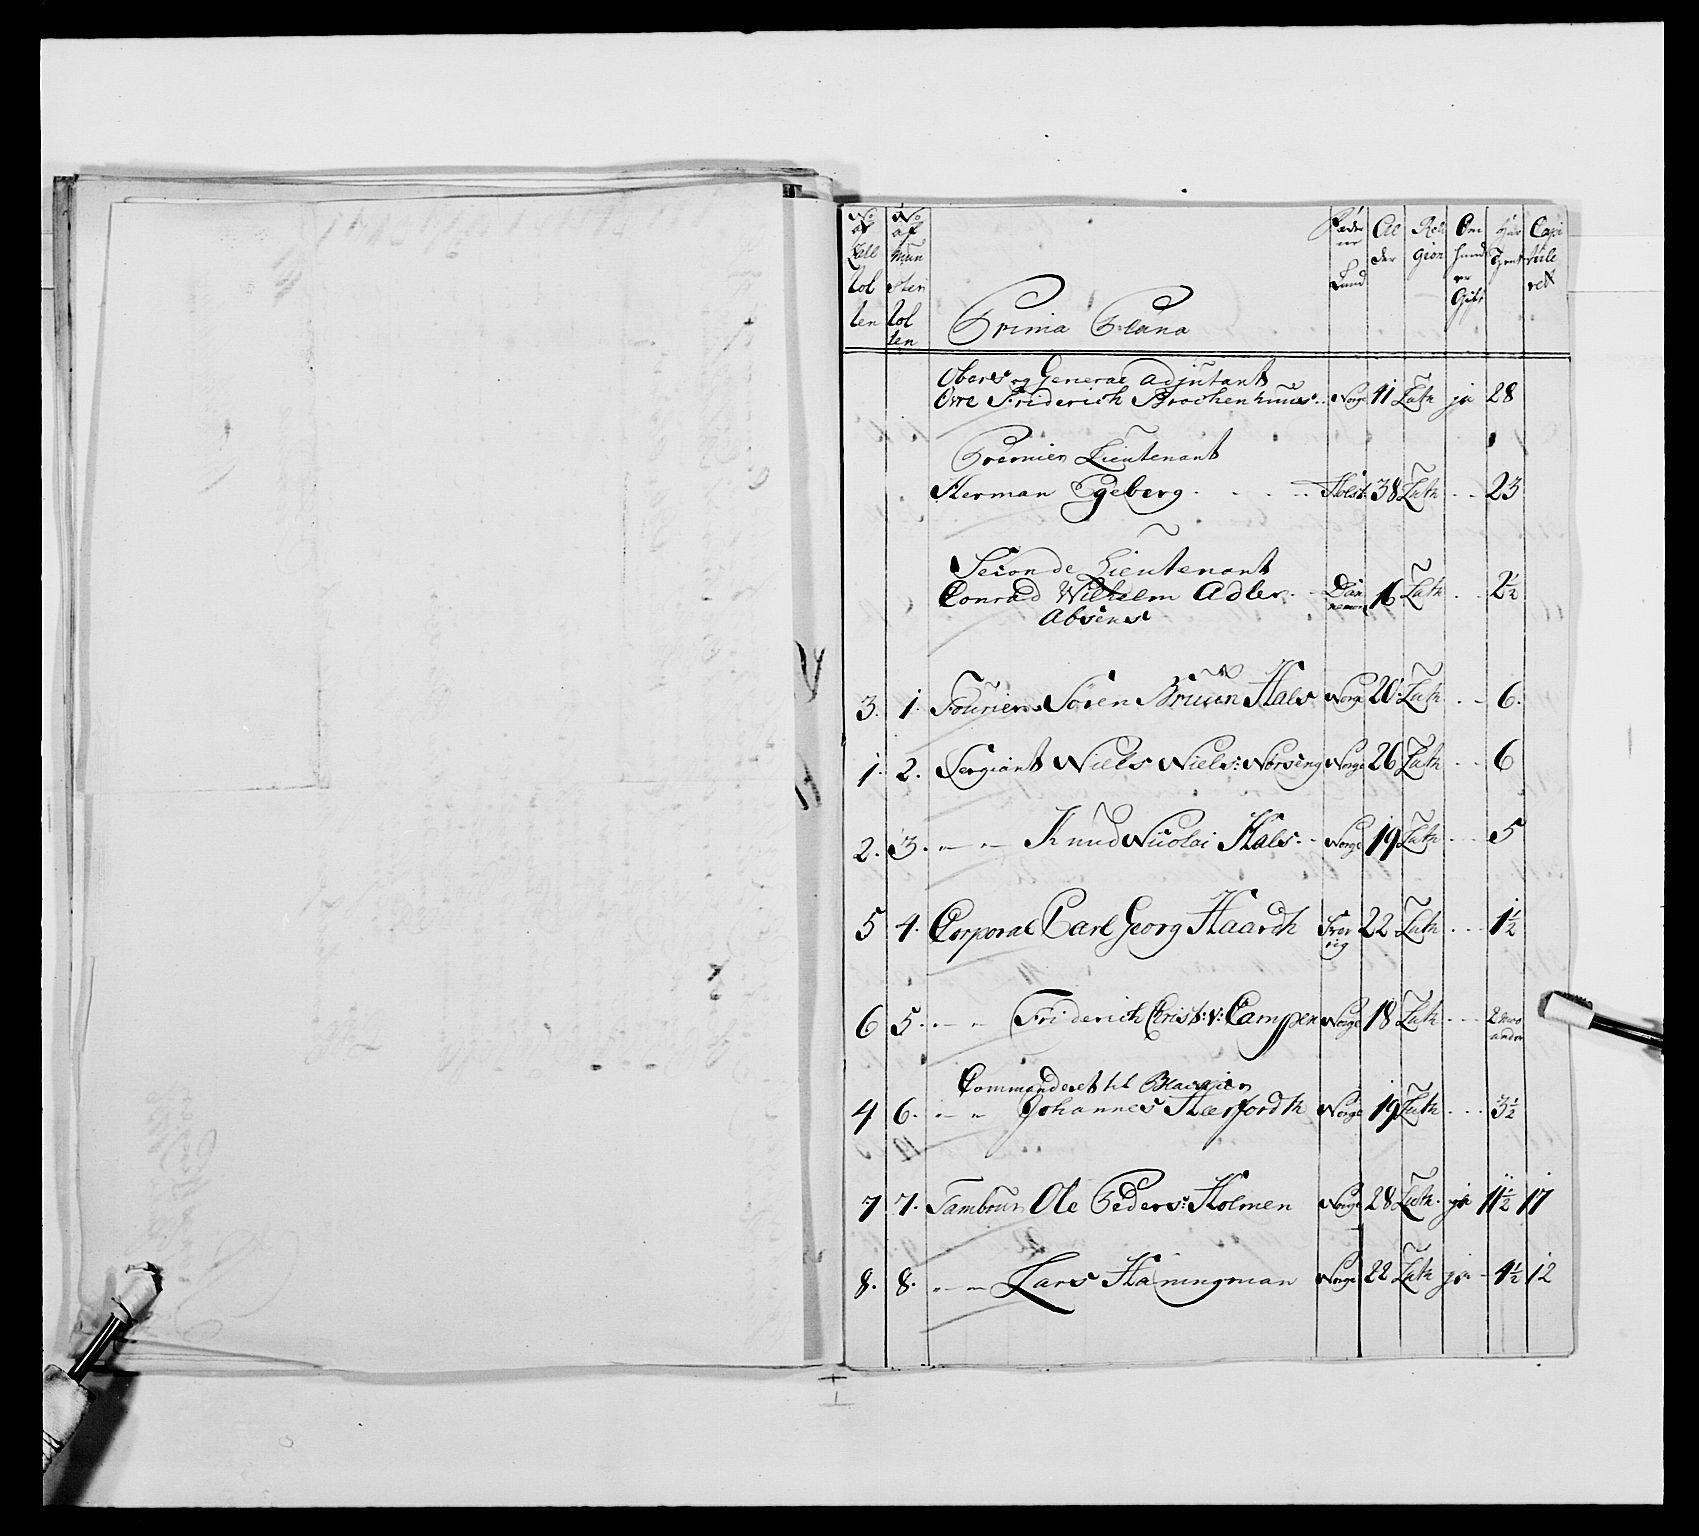 No af Rull Rol len | No af Mun ster Rol len | Prima Plana | Fæder ne Land | Al der | Reli gion | Om hand er Gift | Har Tient | Capi tule ret
Oberst og General Adjutant
Ove Friderich Brochenhuus Norge 41 Luth ja 28
Premier Lieutenant
Herman Egeberg Holst: 38 Luth 23
Seconde Lieutenant
Conrad Wilhelm Adler Dan nemark 16 Luth 2½
Absens
3. 1. Fourier Sören Bruun Hals Norge 20 Luth 6.
1. 2. Sergiant Niels Niels: Norseng Norge 26 Luth 6
2. 3. Knud Nicolai Hals Norge 19 Luth 5
5 4. Corporal Carl Georg Haardh 22 Luth 1½
6 5. Friderich Christ: v: Campen Norge 18 Luth
Commanderet til
4 6. Johannes Herfordh Norge 19 Luth 3½
7 7. Tambour Ole Peders: Holmen Norge 28 Luth ja 11½ 17
8. 8. Lars Haningman Norge 22 Luth ja 4½ 12